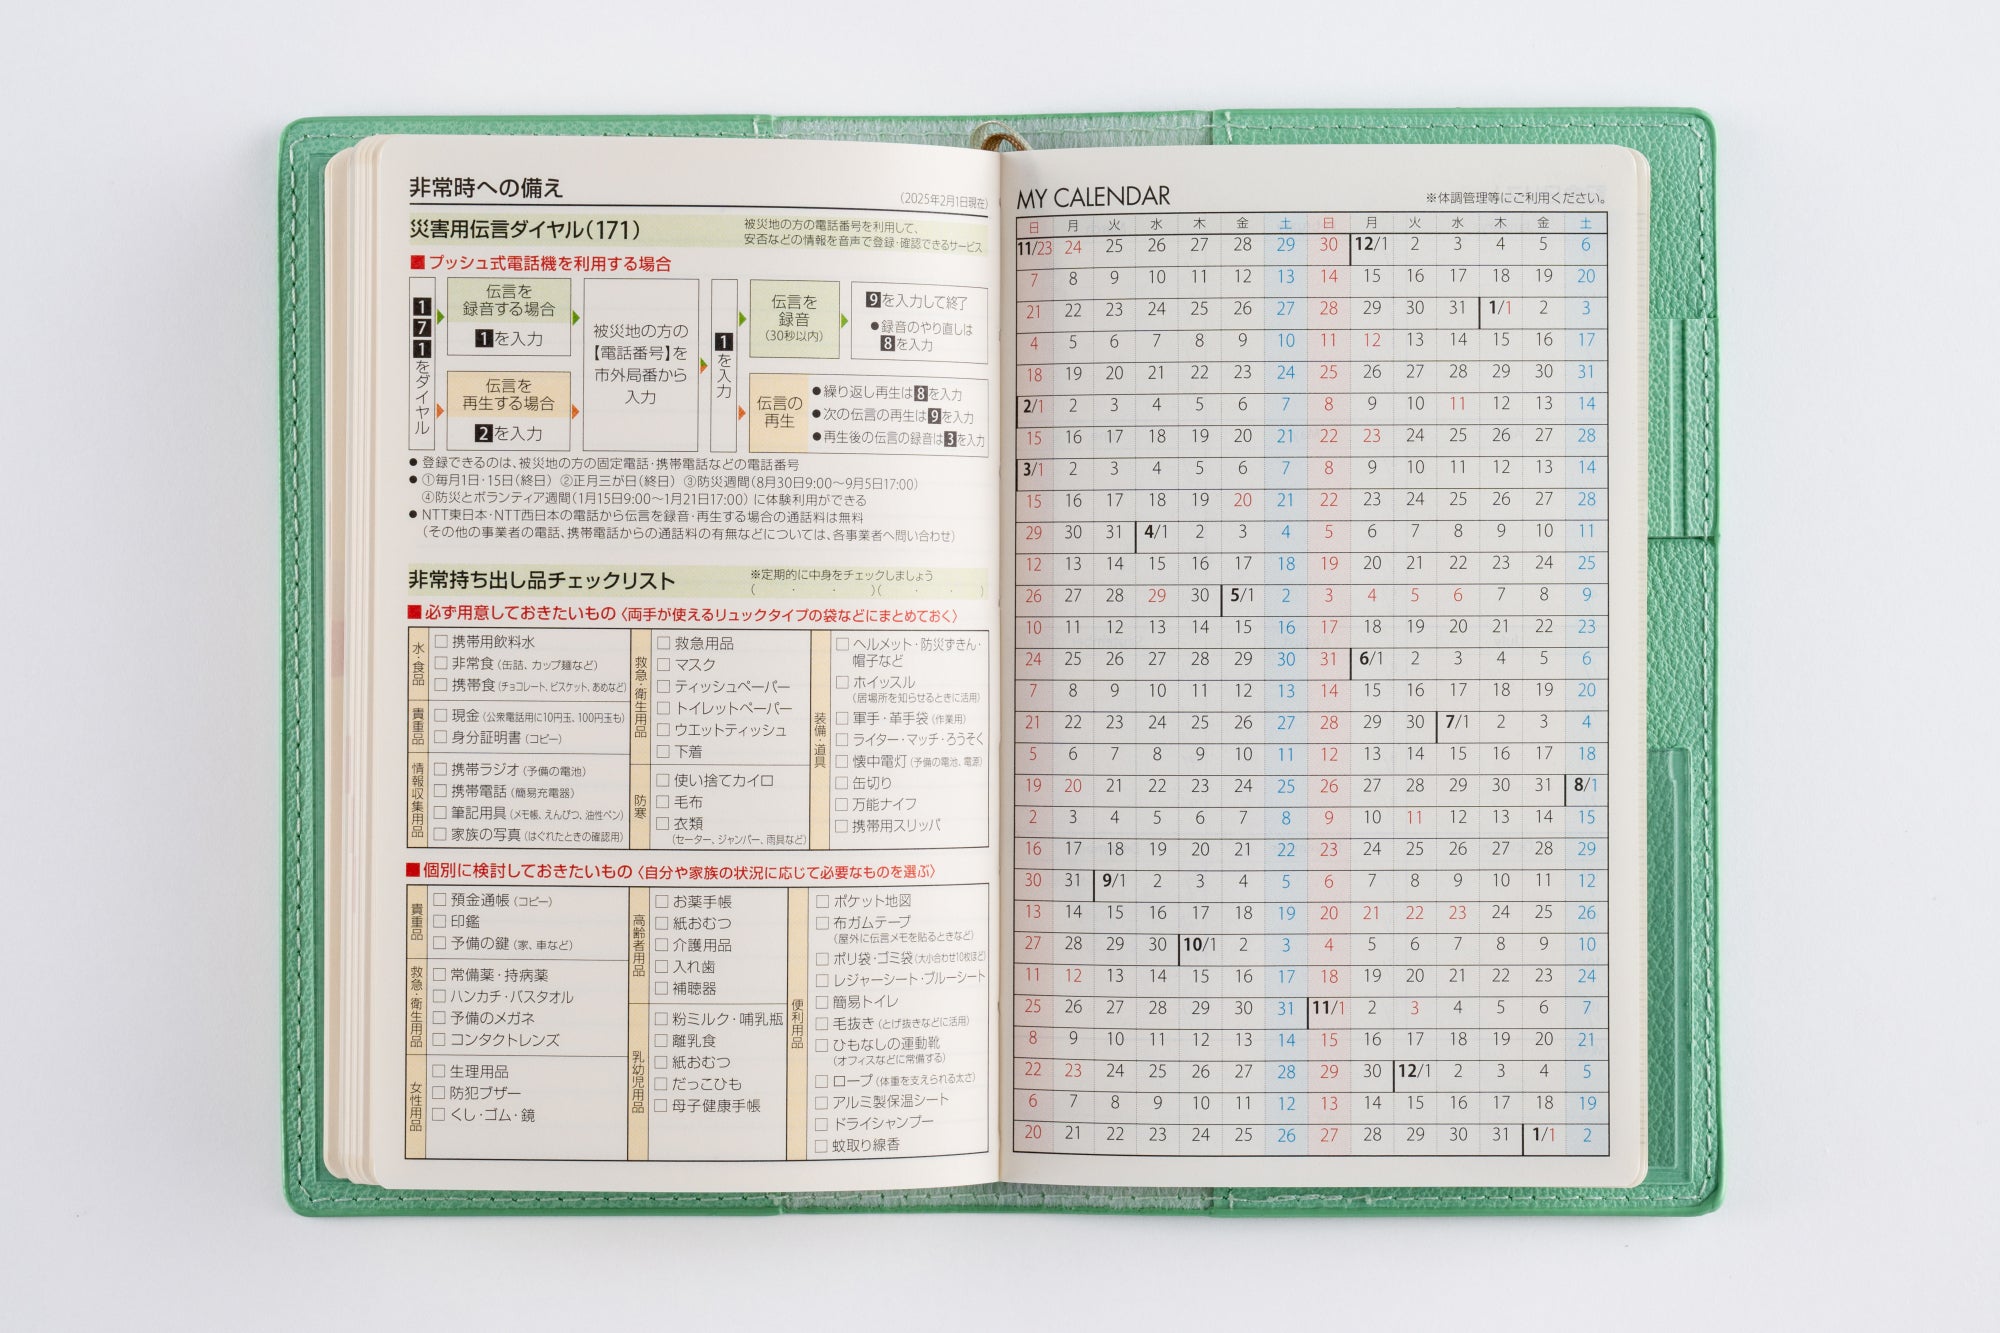 非常時への備え
(2025年2月1日現在)
災害用伝言ダイヤル(171)
被災地の方の電話番号を利用して、
安否などの情報を音声で登録・確認できるサービス
■ プッシュ式電話機を利用する場合
171をダイヤル
伝言を
録音する場合
1を入力
伝言を
再生する場合
2を入力
被災地の方の
【電話番号】を
市外局番から
入力
1を入力
伝言を
録音
(30秒以内)
9を入力して終了
●録音のやり直しは
8を入力
伝言の
再生
●繰り返し再生は8を入力
●次の伝言の再生は9を入力
●再生後の伝言の録音は3を入力
● 登録できるのは、被災地の方の固定電話・携帯電話などの電話番号
● ①毎月1日・15日(終日) ②正月三が日(終日) ③防災週間(8月30日9:00〜9月5日17:00)
④防災とボランティア週間(1月15日9:00〜1月21日17:00) に体験利用ができる
● NTT東日本・NTT西日本の電話から伝言を録音・再生する場合の通話料は無料
(その他の事業者の電話、携帯電話からの通話料の有無などについては、各事業者へ問い合わせ)
非常持ち出し品チェックリスト
※定期的に中身をチェックしましょう
( ・ ・ )( ・ ・ )
■ 必ず用意しておきたいもの〈両手が使えるリュックタイプの袋などにまとめておく〉
水・食品
□ 携帯用飲料水
□ 非常食(缶詰、カップ麺など)
□ 携帯食(チョコレート、ビスケット、あめなど)
貴重品
□ 現金(公衆電話用に10円玉、100円玉も)
□ 身分証明書(コピー)
情報収集用品
□ 携帯ラジオ(予備の電池)
□ 携帯電話(簡易充電器)
□ 筆記用具(メモ帳、えんぴつ、油性ペン)
□ 家族の写真(はぐれたときの確認用)
救急・衛生用品
□ 救急用品
□ マスク
□ ティッシュペーパー
□ トイレットペーパー
□ ウエットティッシュ
□ 下着
防寒
□ 使い捨てカイロ
□ 毛布
□ 衣類
(セーター、ジャンパー、雨具など)
装備・道具
□ ヘルメット・防災ずきん・
帽子など
□ ホイッスル
(居場所を知らせるときに活用)
□ 軍手・革手袋(作業用)
□ ライター・マッチ・ろうそく
□ 懐中電灯(予備の電池、電源)
□ 缶切り
□ 万能ナイフ
□ 携帯用スリッパ
■ 個別に検討しておきたいもの〈自分や家族の状況に応じて必要なものを選ぶ〉
貴重品
□ 預金通帳(コピー)
□ 印鑑
□ 予備の鍵(家、車など)
救急・衛生用品
□ 常備薬・持病薬
□ ハンカチ・バスタオル
□ 予備のメガネ
□ コンタクトレンズ
女性用品
□ 生理用品
□ 防犯ブザー
□ くし・ゴム・鏡
高齢者用品
□ お薬手帳
□ 紙おむつ
□ 介護用品
□ 入れ歯
□ 補聴器
乳幼児用品
□ 粉ミルク・哺乳瓶
□ 離乳食
□ 紙おむつ
□ だっこひも
□ 母子健康手帳
便利用品
□ ポケット地図
□ 布ガムテープ
(屋外に伝言メモを貼るときなど)
□ ポリ袋・ゴミ袋(大小合わせ10枚ほど)
□ レジャーシート・ブルーシート
□ 簡易トイレ
□ 毛抜き(とげ抜きなどに活用)
□ ひもなしの運動靴
(オフィスなどに常備する)
□ ロープ(体重を支えられる太さ)
□ アルミ製保温シート
□ ドライシャンプー
□ 蚊取り線香
MY CALENDAR
※体調管理等にご利用ください。
日 月 火 水 木 金 土 日 月 火 水 木 金 土
11/23 24 25 26 27 28 29 30 12/1 2 3 4 5 6
7 8 9 10 11 12 13 14 15 16 17 18 19 20
21 22 23 24 25 26 27 28 29 30 31 1/1 2 3
4 5 6 7 8 9 10 11 12 13 14 15 16 17
18 19 20 21 22 23 24 25 26 27 28 29 30 31
2/1 2 3 4 5 6 7 8 9 10 11 12 13 14
15 16 17 18 19 20 21 22 23 24 25 26 27 28
3/1 2 3 4 5 6 7 8 9 10 11 12 13 14
15 16 17 18 19 20 21 22 23 24 25 26 27 28
29 30 31 4/1 2 3 4 5 6 7 8 9 10 11
12 13 14 15 16 17 18 19 20 21 22 23 24 25
26 27 28 29 30 5/1 2 3 4 5 6 7 8 9
10 11 12 13 14 15 16 17 18 19 20 21 22 23
24 25 26 27 28 29 30 31 6/1 2 3 4 5 6
7 8 9 10 11 12 13 14 15 16 17 18 19 20
21 22 23 24 25 26 27 28 29 30 7/1 2 3 4
5 6 7 8 9 10 11 12 13 14 15 16 17 18
19 20 21 22 23 24 25 26 27 28 29 30 31 8/1
2 3 4 5 6 7 8 9 10 11 12 13 14 15
16 17 18 19 20 21 22 23 24 25 26 27 28 29
30 31 9/1 2 3 4 5 6 7 8 9 10 11 12
13 14 15 16 17 18 19 20 21 22 23 24 25 26
27 28 29 30 10/1 2 3 4 5 6 7 8 9 10
11 12 13 14 15 16 17 18 19 20 21 22 23 24
25 26 27 28 29 30 31 11/1 2 3 4 5 6 7
8 9 10 11 12 13 14 15 16 17 18 19 20 21
22 23 24 25 26 27 28 29 30 12/1 2 3 4 5
6 7 8 9 10 11 12 13 14 15 16 17 18 19
20 21 22 23 24 25 26 27 28 29 30 31 1/1 2